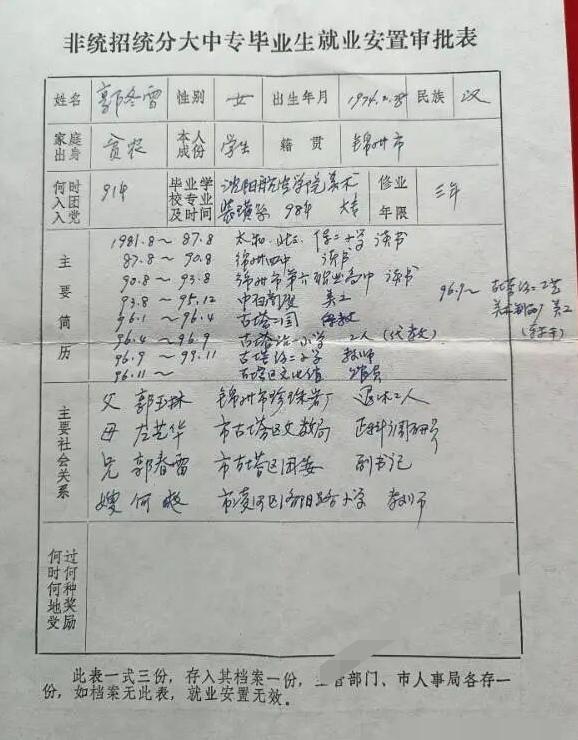 非统招统分大中专毕业生就业安置审批表
姓名 郭冬雪 性别 女 出生年月 1974.2. 民族 汉
家庭出身 贫农 本人成份 学生 籍贯 锦州市
何时入团入党 91年 毕业学校专业及时间 沈阳 学院美术装潢系 98年 大专 修业年限 三年
主要简历
1981.8～87.8 太和 小学 读书
87.8～90.8 锦州四中 读书
90.8～93.8 锦州市第六职业高中 读书
93.8～95.12 中百商厦 美工
96.1～96.4 古塔二园
96.4～96.9 古塔 小学 工人(代教)
96.9～99.11 古塔 小学 教师
96.11～ 古塔区文化馆
96.9～ 古塔 工艺美术 厂 美工
主要社会关系
父 郭玉林 锦州市珍珠岩厂 退休工人
母 左芝华 市古塔区文教局 正科调研员
兄 郭春雷 市古塔区团委 副书记
嫂 何 市凌河区洛阳路小学 教师
何时何地受过何种奖励
此表一式三份，存入其档案一份， 管部门、市人事局各存一
份，如档案无此表，就业安置无效。